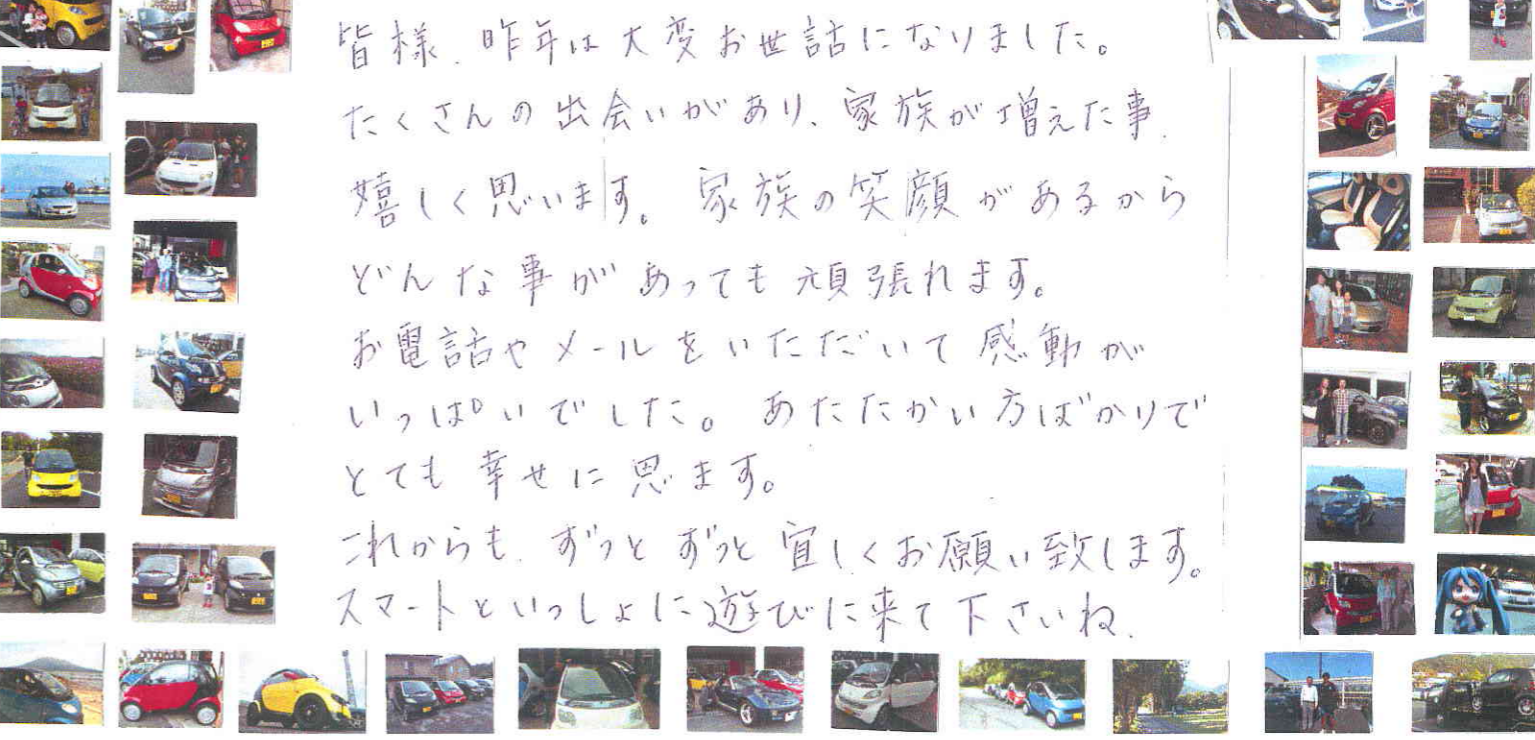 皆様、昨年は大変お世話になりました。
たくさんの出会いがあり、家族が増えた事、
嬉しく思います。家族の笑顔があるから
どんな事があっても頑張れます。
お電話やメールをいただいて感動が
いっぱいでした。あたたかい方ばかりで
とても幸せに思ます。
これからも、ずっとずっと宜しくお願い致します。
スマートといっしょに遊びに来て下さいね。